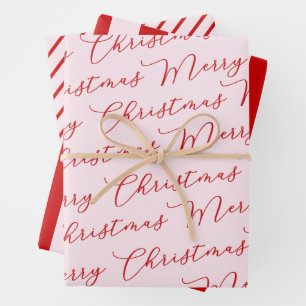 Christmas
Christmas Merry
Christmas Merry
Christmas Merry
Merry Christmas
Christmas Merry
Merry Christmas